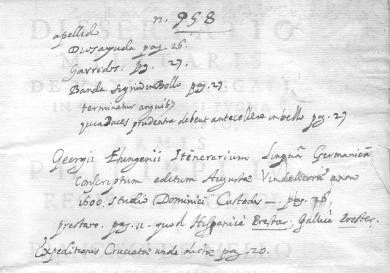 n. 958
apellid
Dios ayuda pag. 26.
Garridos. pag. 27.
Banda signũ in Bello pag. 27.
terminatur anguibus
quia Duces prudentia debent antecellere in bello pag. 27
Georgii Ehingenii Itenerarium Linguâ Germanicâ
Conscriptum editum Augustæ Vindelicorũ anno
1600. studio Dominici Custodis — pag. 76,
prestaro. pag. 11 - quod Hispanicè Prestar, Gallicè Prester.
Expeditionis Cruciatæ unde dictæ pag. 20.